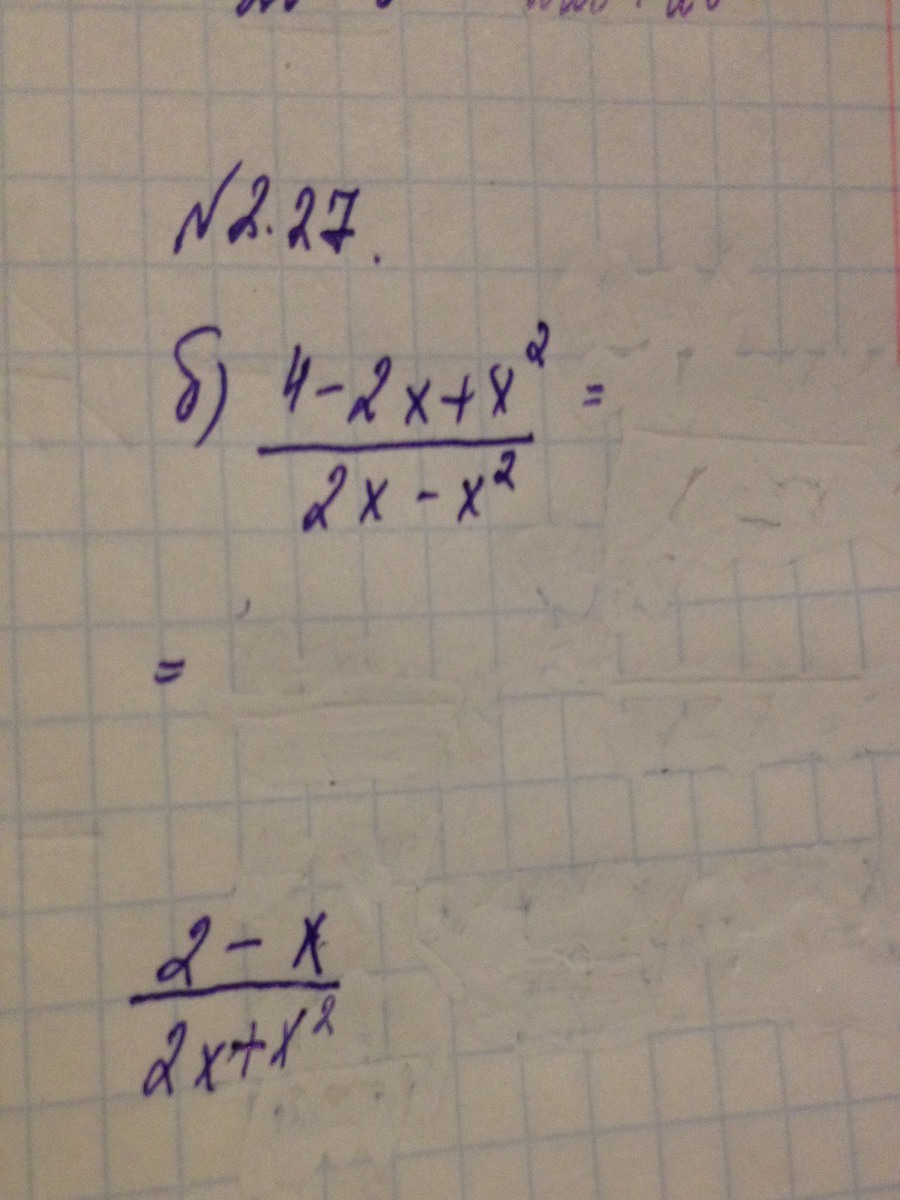 № 2.27.
б) 4-2x+x² =
2x - x²
=
2 - x
2x+x²